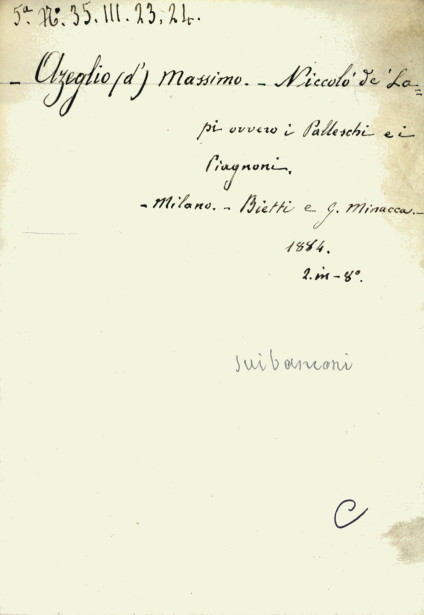 5ª. Nº. 35. III. 23, 24.
- Azeglio (d') Massimo. - Niccolò de' La=
pi ovvero i Palleschi e i
Piagnoni.
- Milano. - Bietti e G. Minacca. -
1884.
2. in - 8º.
sui banconi
C